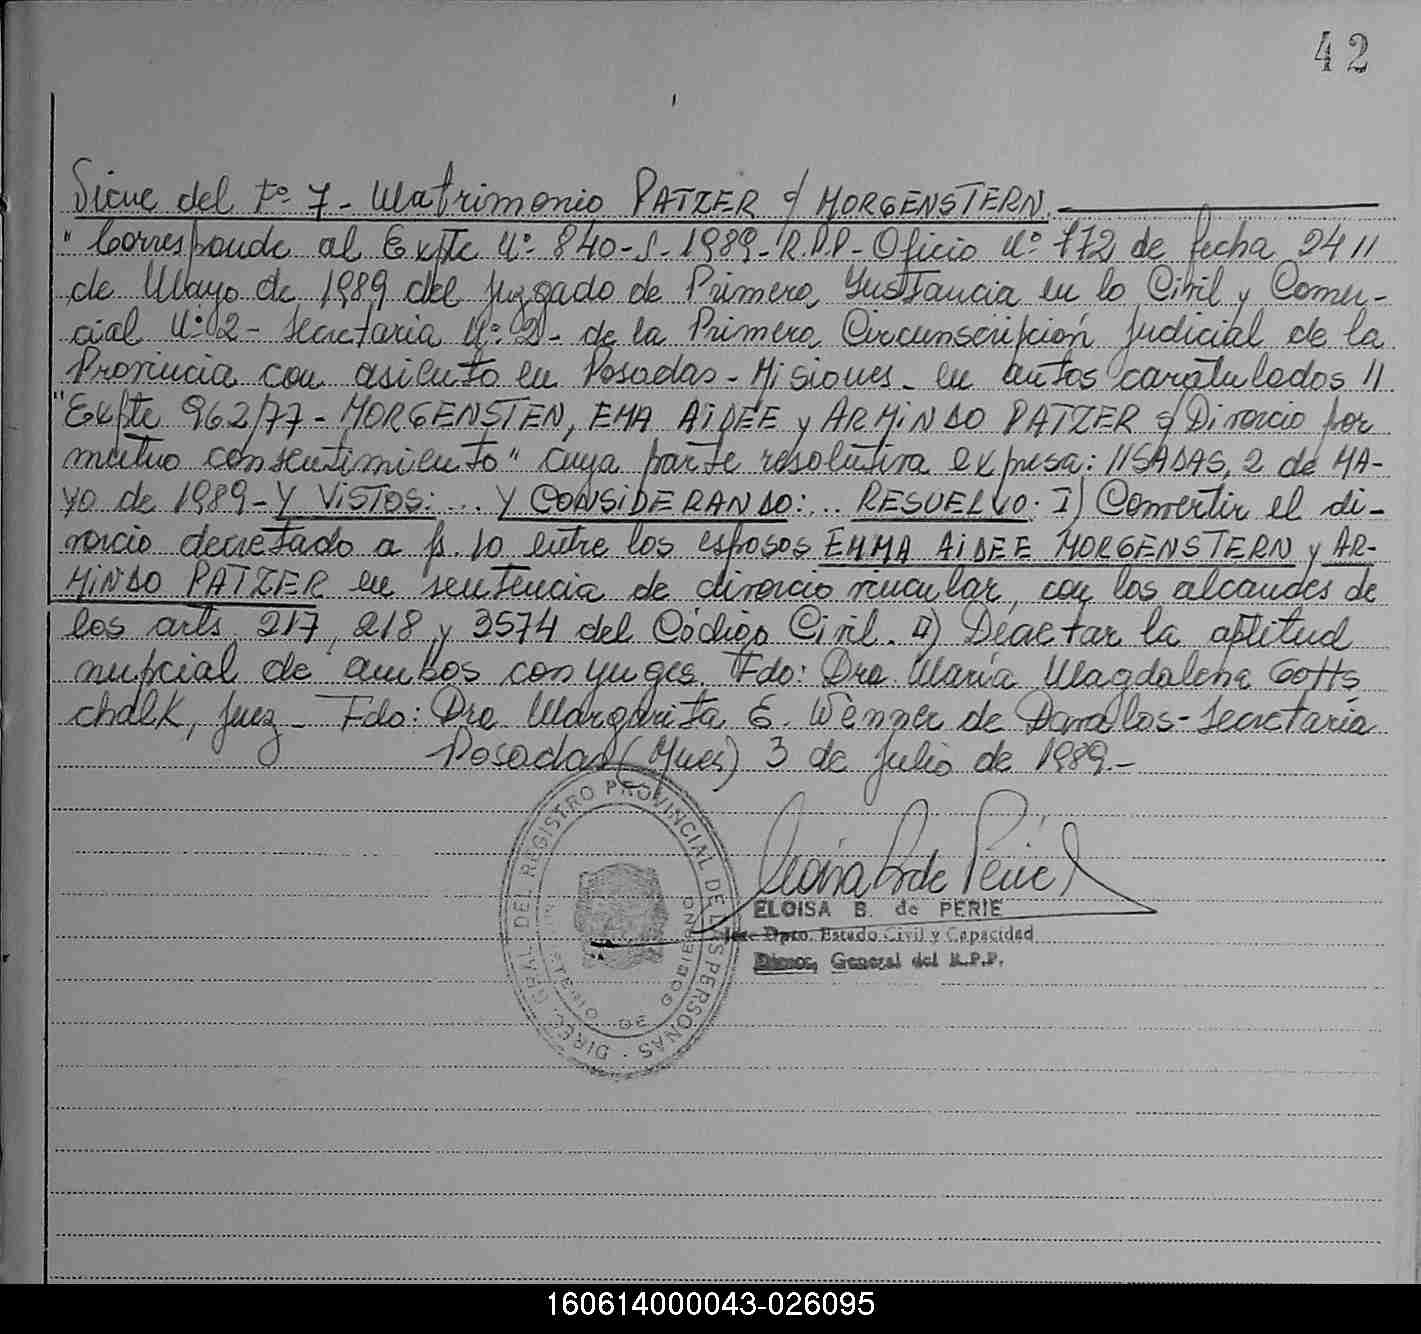 42
Sigue del Fº 7 - Matrimonio PATZER c/ MORGENSTERN.
"Corresponde al Expte Nº 840-S-1989-R.P.P-Oficio Nº 772 de fecha 24 //
de Mayo de 1989 del Juzgado de Primera Instancia en lo Civil y Comer-
cial Nº 2 - Secretaria Nº 2 - de la Primera Circunscripción Judicial de la
Provincia con asiento en Posadas - Misiones - en autos caratulados //
"Expte 962/77 - MORGENSTEN, EMA AIDEE y ARMINDO PATZER s/ Divorcio por
mutuo consentimiento" cuya parte resolutiva expresa: //SADAS, 2 de MA-
yo de 1989 - Y VISTOS: ... Y CONSIDERANDO: ... RESUELVO: I) Convertir el di-
vorcio decretado a fs. 10 entre los esposos EMMA AIDEE MORGENSTERN y AR-
MINDO PATZER en sentencia de divorcio vincular, con los alcances de
los arts, 217, 218 y 3574 del Código Civil. II) Decretar la aptitud
nupcial de ambos conyuges. Fdo: Dra María Magdalena Gotts
chalk, Juez - Fdo: Dra Margarita E. Wenner de Davalos - Secretaria
Posadas (Mnes) 3 de Julio de 1989.-
DIREC. GRAL. DEL REGISTRO PROVINCIAL DE LAS PERSONAS
MINISTERIO DE GOBIERNO
ELOISA B. de PERIE
Jefe Dpto. Estado Civil y Capacidad
Direcc. General del R.P.P.
160614000043-026095